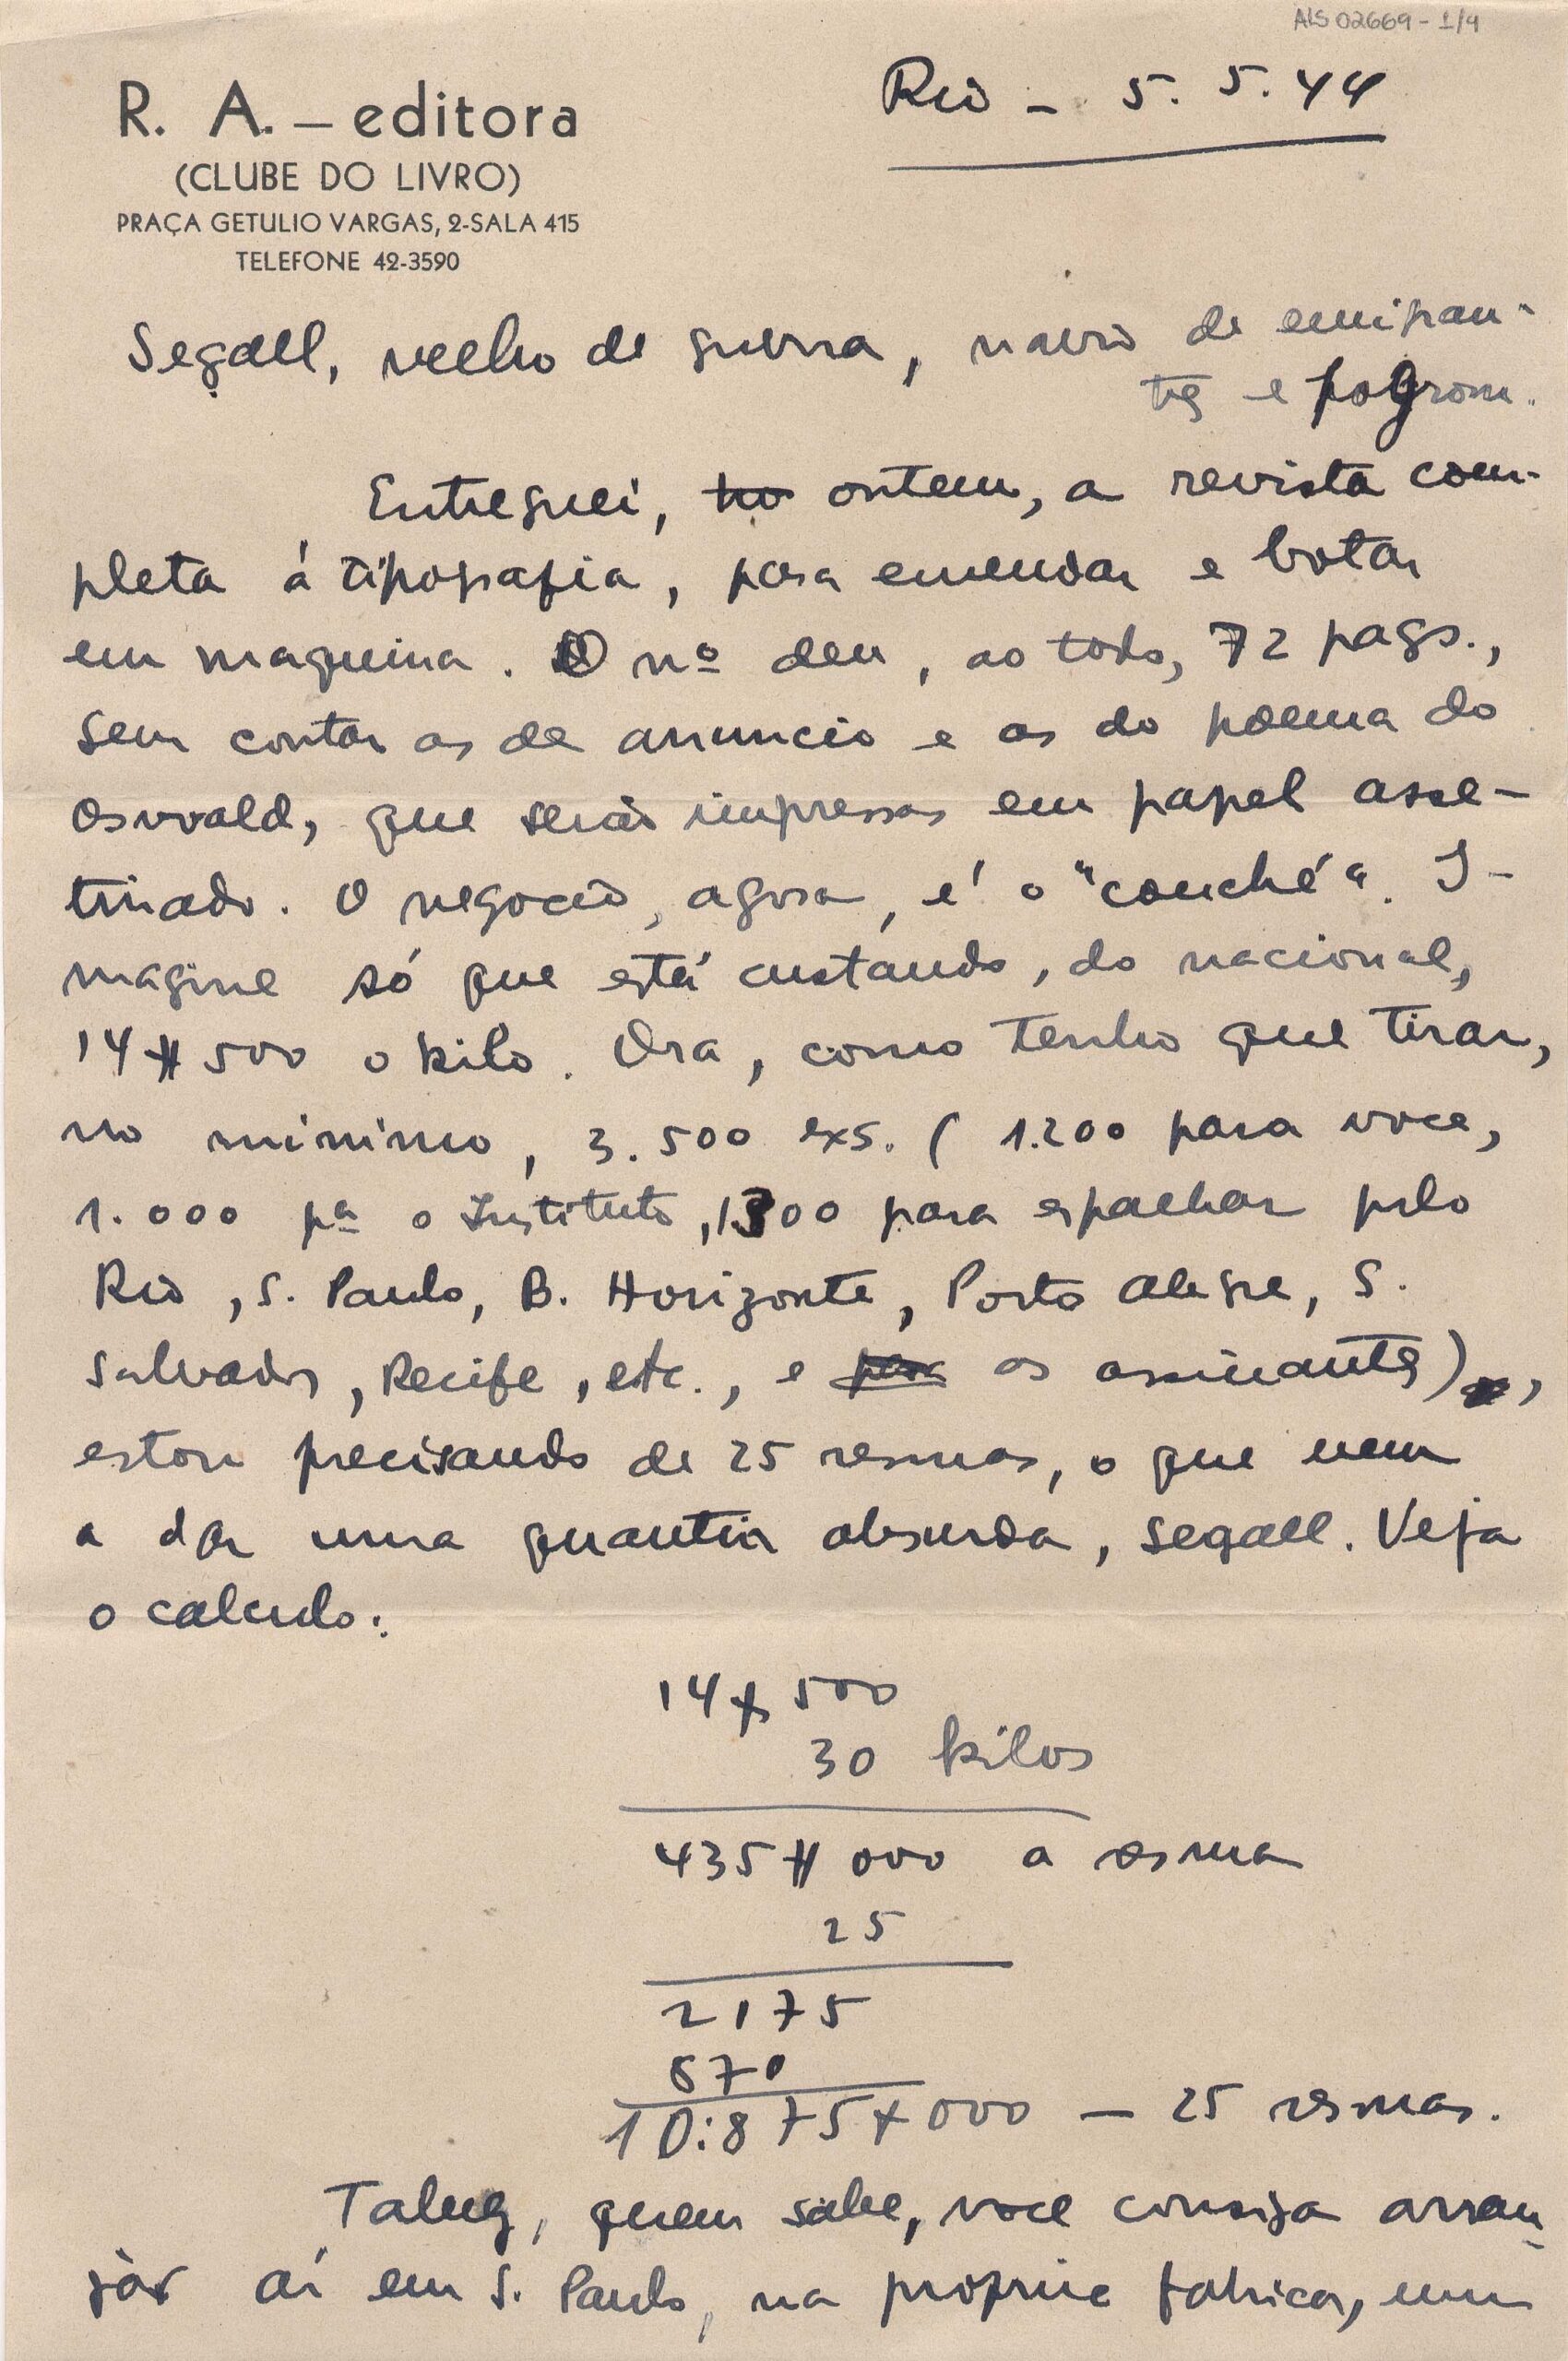 ALS 02669 - 1/4
R. A. — editora
(CLUBE DO LIVRO)
PRAÇA GETULIO VARGAS, 2-SALA 415
TELEFONE 42-3590
Rio - 5. 5. 44
Segall, velho de guerra, navio de emigran-
tes e pogrom.
Entreguei, no ontem, a revista com-
pleta á tipografia, para emendar e botar
em maquina. O nº deu, ao todo, 72 pags.,
sem contar as de anuncio e as do poema do
Oswald, que serão impressas em papel asse-
tinado. O negocio, agora, é o "couché". I-
magine só que está custando, do nacional,
14$500 o kilo. Ora, como tenho que tirar,
no minimo, 3.500 exs. (1.200 para voce,
1.000 pª o Instituto, 1300 para espalhar pelo
Rio, S. Paulo, B. Horizonte, Porto Alegre, S.
Salvador, Recife, etc., e para os assinantes),
estou precisando de 25 resmas, o que vem
a dar uma quantia absurda, Segall. Veja
o calculo:
14$500
30 kilos
435$000 a resma
25
2175
870
10:875$000 — 25 resmas.
Talvez, quem sabe, voce consiga arran-
jar aí em S. Paulo, na propria fabrica, um